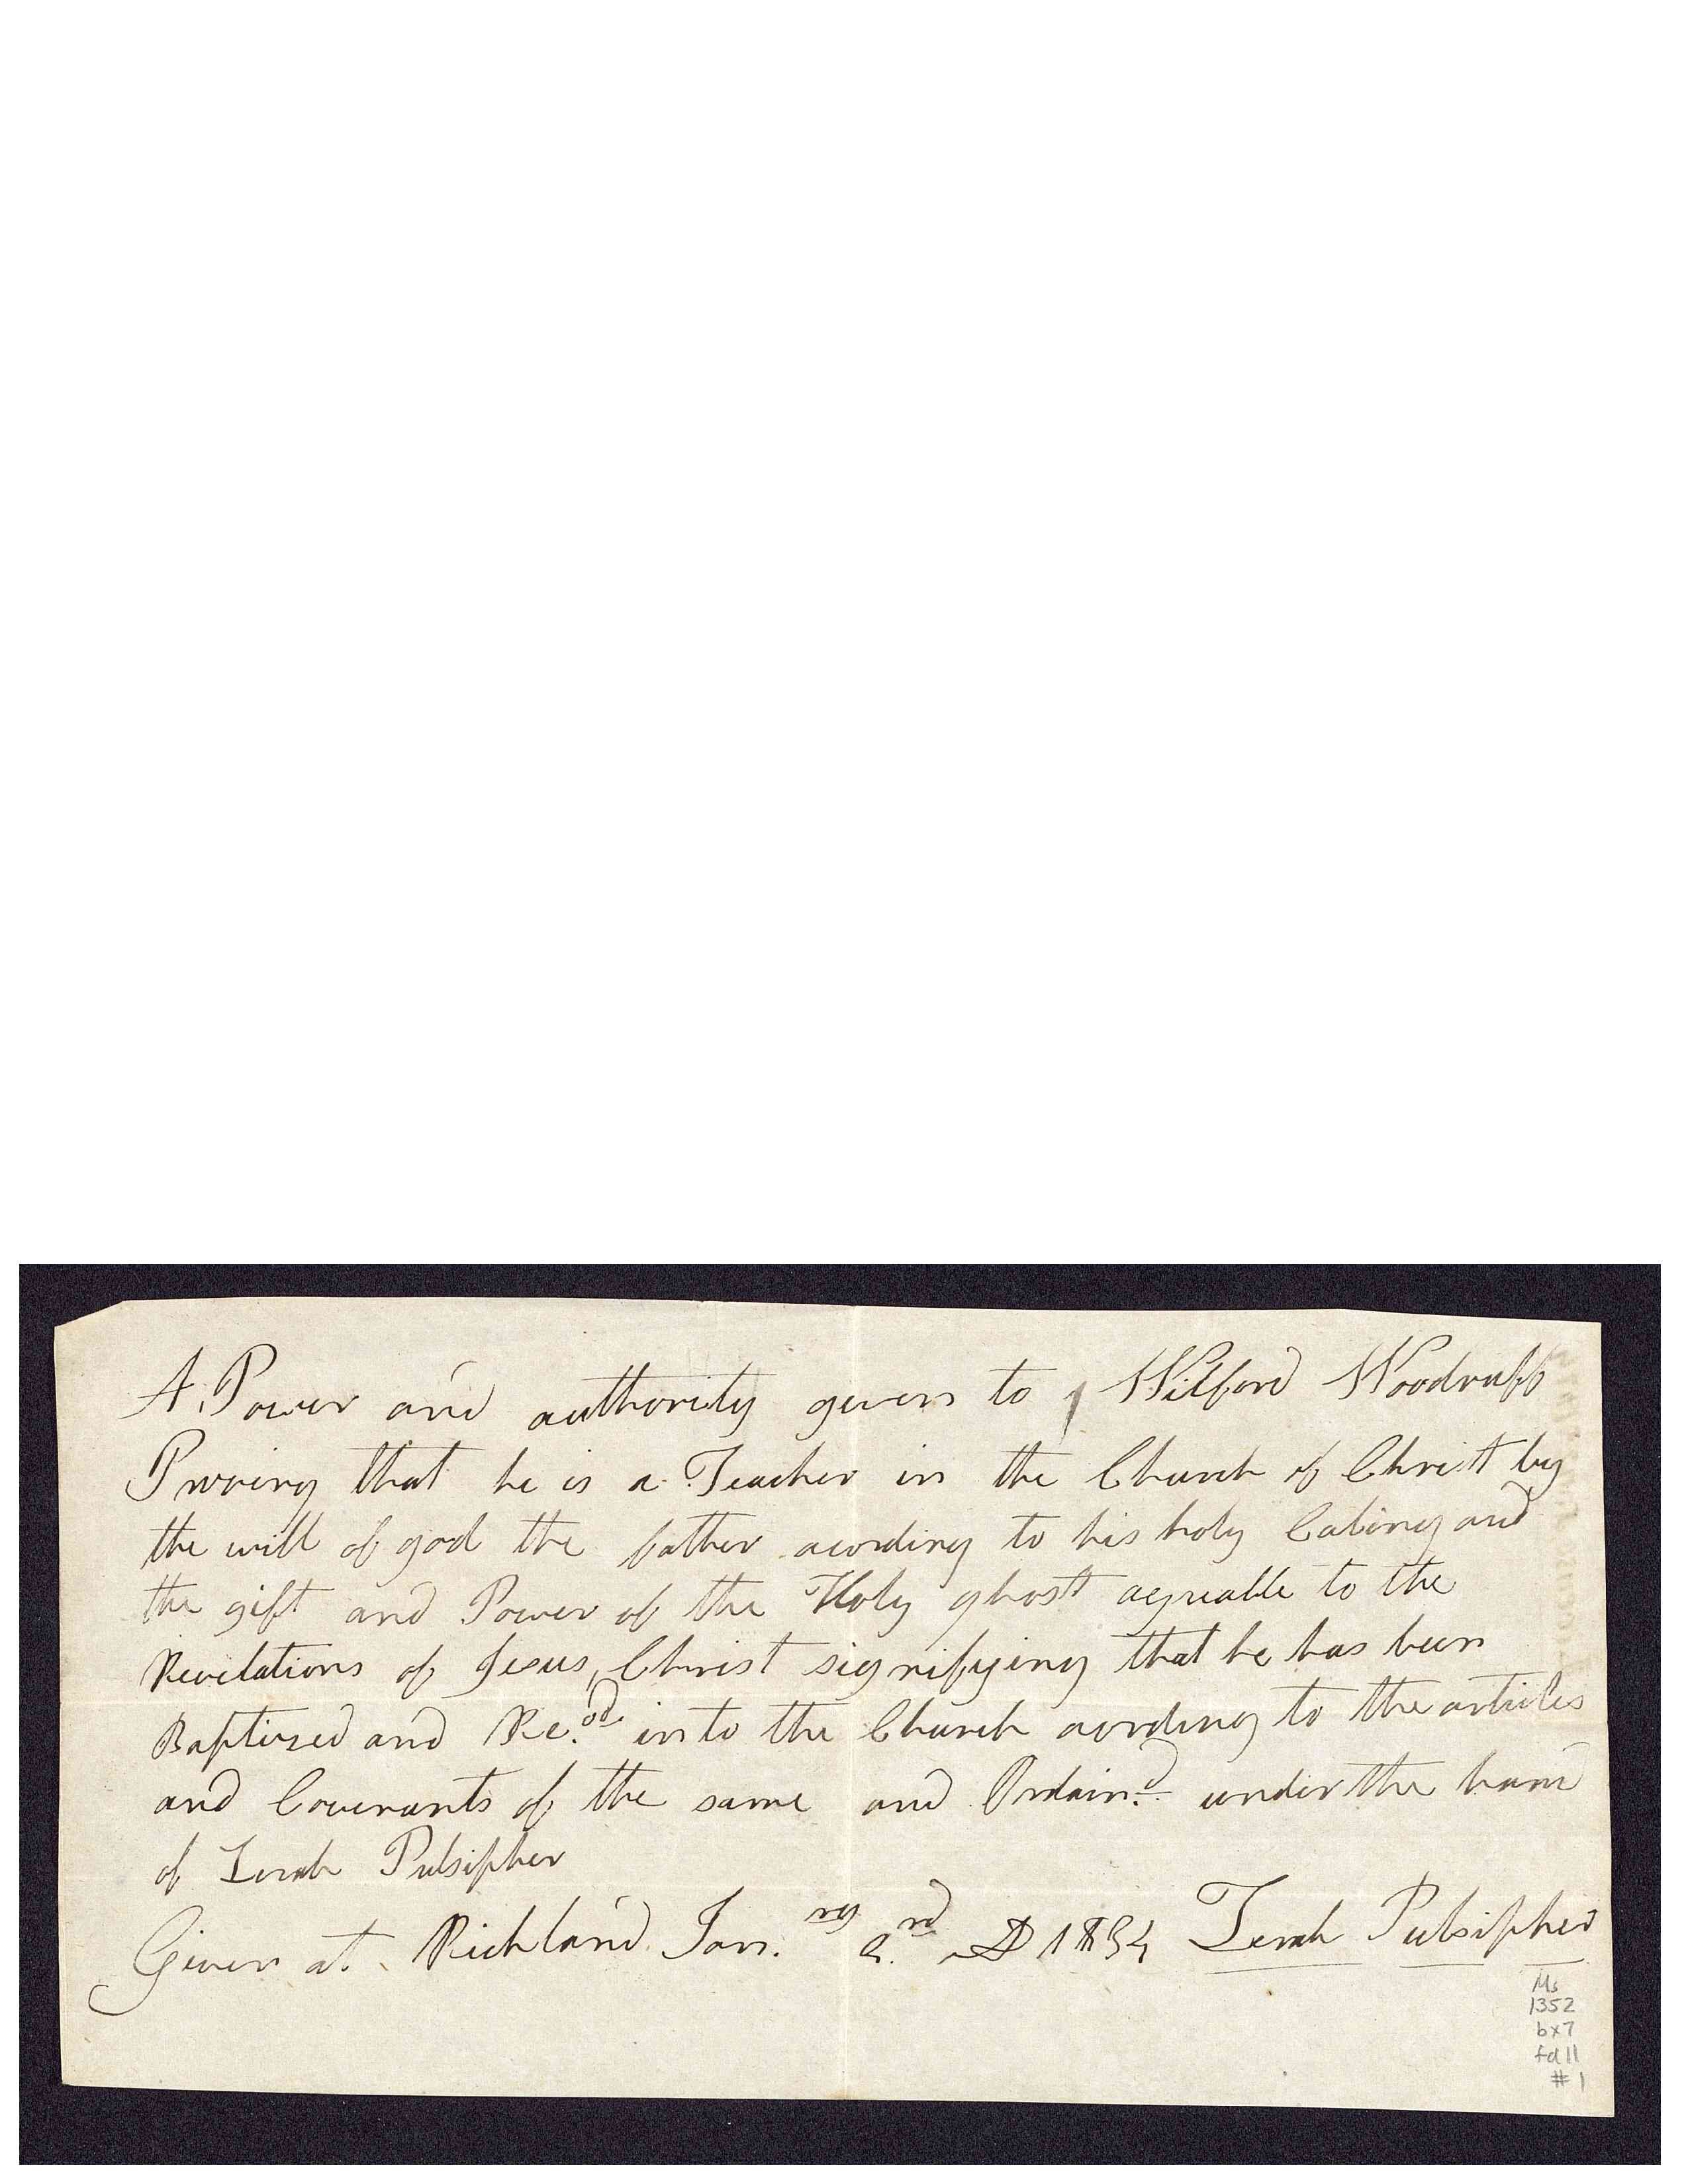 A Power and authority given to Wilford Woodruff
Proving that he is a Teacher in the Church of Christ by
the will of god the father acording to his holy Caling and
the gift and Power of the Holy ghost agreable to the
Revelations of Jesus Christ signifying that he has been
Baptized and Rec.d into the Church acording to the articles
and Covenants of the same and Ordain.d under the hand
of Zerah Pulsipher
Given at Richland Jan.ry 2.nd AD 1834 Zerah Pulsipher
Ms
1352
bx7
fd 11
#1